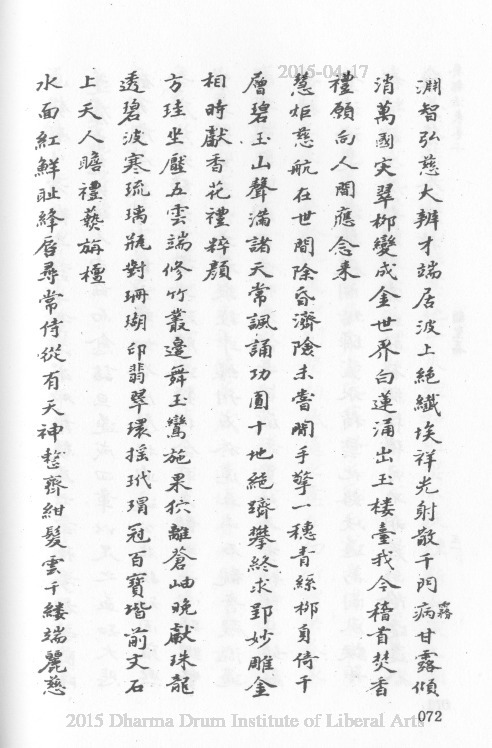 2015-04-17
淵智弘慈大辨才端居波上絕纖埃祥光射散千門病甘露傾
霧
消萬國灾翠柳變成金世界白蓮涌出玉楼臺我今稽首焚香
禮願向人間應念来
慧炬慈航在世間除昏濟險未嘗閑手擎一穗青絲柳身倚千
層碧玉山聲滿諸天常諷誦功圓十地絕躋攀終求郢妙雕金
相時獻香花禮粹顏
方珪坐壓五雲端修竹叢邊舞玉鸞施果狖離蒼岫晚獻珠龍
透碧波寒琉璃瓶對珊瑚印翡翠環搖玳瑁冠百寶堦前文石
上天人瞻禮爇旃檀
水面紅鮮耻絳唇尋常侍從有天神整齊紺髮雲千縷端麗慈
072
2015 Dharma Drum Institute of Liberal Arts